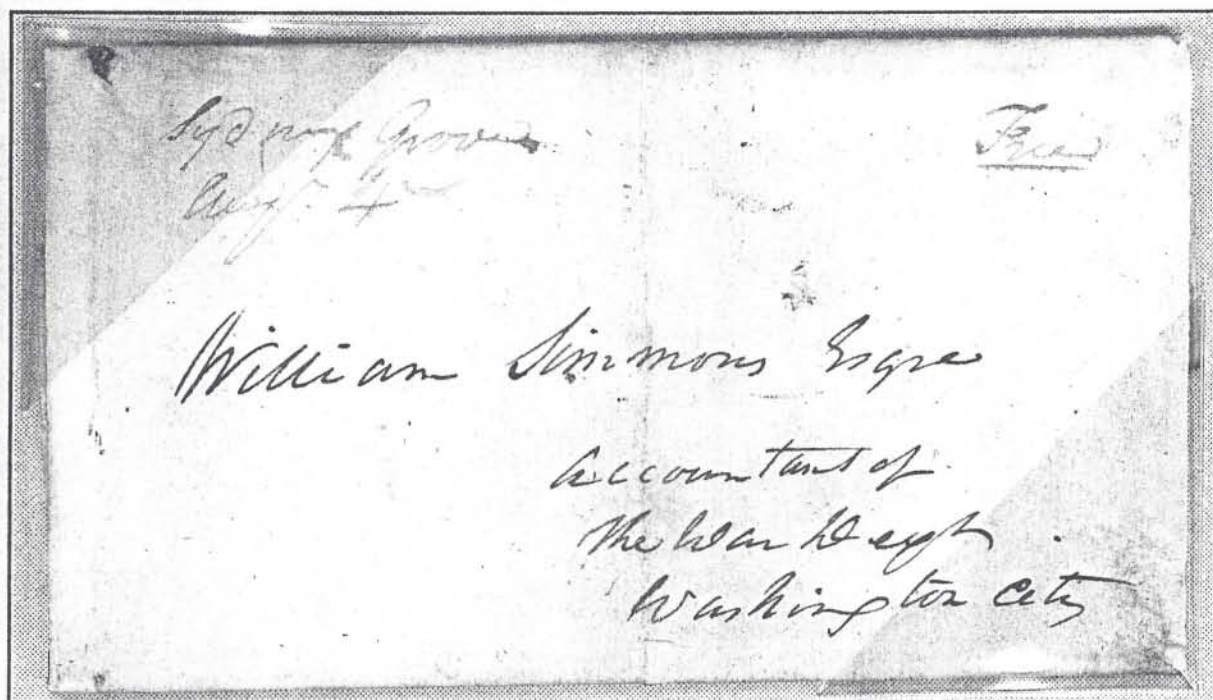 Sydneys Grove
Free
Augt. 4th
William Simmons Esqre
accountant of
the War Dept
Washington City